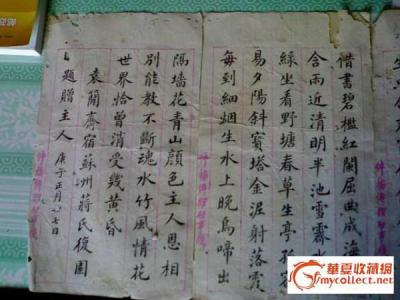 碧檻紅闌屈曲成海
含雨近清明半池雪
綠坐看野塘春草生亭
易夕陽斜寶塔金泥射落霞
每到細烟生水上晚鳥啼出
隔墻花青山顏色主人恩相
別能教不斷魂水竹風情花
世界恰曾消受幾黄昏
袁簡齋宿蘇州蔣氏復園
題贈主人 庚子正月廿七日
華夏收藏網
mycollect.net